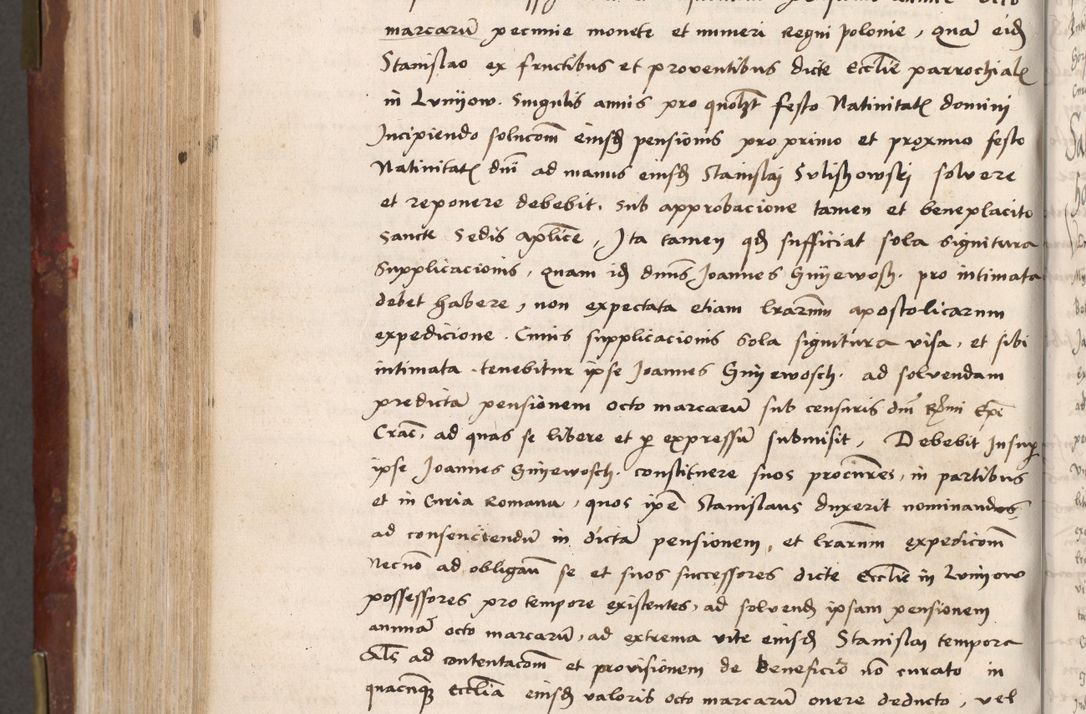 marcarū pecunie monete et numeri Regni polonie, quā eidē
Stanislao ex fructibus et proventibus dicte Ecclīe parrochialē
in Lunijow. Singulis annis pro quolzt festo Nativitatē domini
Incipiendo solucōm eiusdē pensionis pro primo et proximo festo
Nativitatē dnī ad manus eiusdē Stanislaj Sulishowskj solvere
et reponere debebit. Sub approbacione tamen et beneplacito
Sancte Sedis aplīce, Ita tamen qdē sufficiat sola signitura
Supplicacionis, quam idē dnūs Joannes Gnijewosch. pro intimata
debet habere, non expectata etiam lrārum apostolicarum
expedicione. Cuius supplicacionis sola signitura visa, et sibi
intimata tenebitur ipse Joannes Gnijewosch. ad solvendam
predictā pensionem octo marcarū sub censuris dnī Rmī Epī
Crac. ad quas se libere et p expressū submisit, Debebit Insup
ipse Joannes Gnijewosch. constituere suos procūres, in partibus
et in Curia Romana, quos ipē Stanislaus duxerit nominandos
ad consenciendū in dictā pensionem, et lrārum expedicōm
Necnō ad obligan̄ se et suos successores dicte Ecclīe in Lunijow
possessores pro tempore existentes, ad solvendē ipsam pensionem
annuā octo marcarū, ad extrema vite eiusdē Stanislai tempora
ad contentacōm et provisionem de Beneficio nō curato in
quacunq Ecclīa eiusdē valoris octo marcarū onere deducto, vel